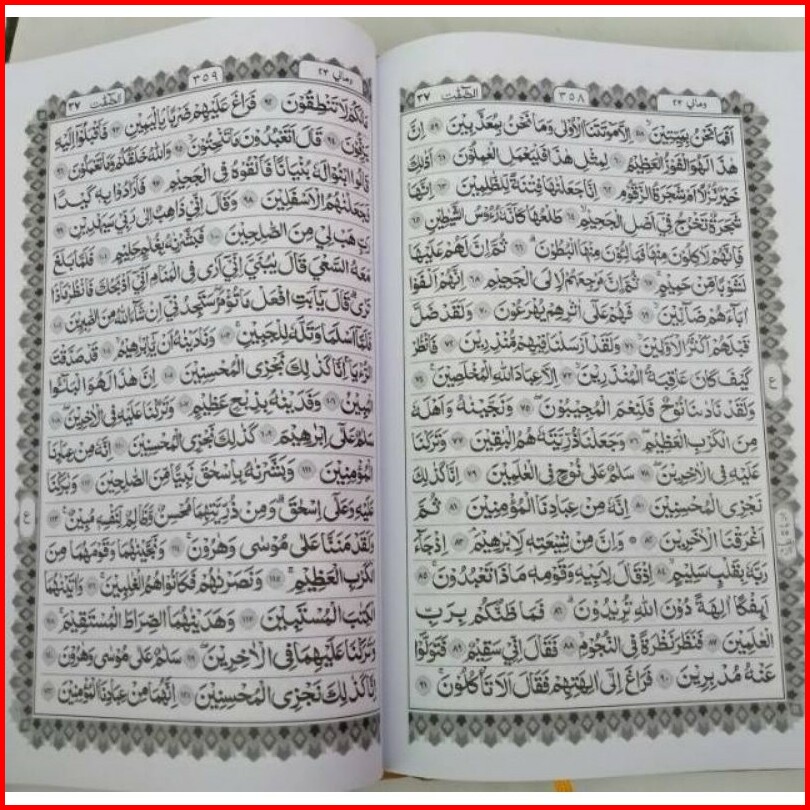 وما لي ٢٣
٣٥٨
الصّٰٓفّٰت ٣٧
اَفَمَا نَحْنُ بِمَيِّتِيْنَ ۙ ٥٨ اِلَّا مَوْتَتَنَا الْاُوْلٰى وَمَا نَحْنُ بِمُعَذَّبِيْنَ ٥٩ اِنَّ
هٰذَا لَهُوَ الْفَوْزُ الْعَظِيْمُ ٦٠ لِمِثْلِ هٰذَا فَلْيَعْمَلِ الْعٰمِلُوْنَ ٦١ اَذٰلِكَ
خَيْرٌ نُّزُلًا اَمْ شَجَرَةُ الزَّقُّوْمِ ٦٢ اِنَّا جَعَلْنٰهَا فِتْنَةً لِّلظّٰلِمِيْنَ ٦٣ اِنَّهَا
شَجَرَةٌ تَخْرُجُ فِيْٓ اَصْلِ الْجَحِيْمِ ۙ ٦٤ طَلْعُهَا كَاَنَّهٗ رُءُوْسُ الشَّيٰطِيْنِ ٦٥
فَاِنَّهُمْ لَاٰكِلُوْنَ مِنْهَا فَمَالِـُٔوْنَ مِنْهَا الْبُطُوْنَ ۗ ٦٦ ثُمَّ اِنَّ لَهُمْ عَلَيْهَا
لَشَوْبًا مِّنْ حَمِيْمٍ ۚ ٦٧ ثُمَّ اِنَّ مَرْجِعَهُمْ لَا۟اِلَى الْجَحِيْمِ ٦٨ اِنَّهُمْ اَلْفَوْا
اٰبَاۤءَهُمْ ضَاۤلِّيْنَ ۙ ٦٩ فَهُمْ عَلٰٓى اٰثٰرِهِمْ يُهْرَعُوْنَ ٧٠ وَلَقَدْ ضَلَّ
قَبْلَهُمْ اَكْثَرُ الْاَوَّلِيْنَ ۙ ٧١ وَلَقَدْ اَرْسَلْنَا فِيْهِمْ مُّنْذِرِيْنَ ٧٢ فَانْظُرْ
كَيْفَ كَانَ عَاقِبَةُ الْمُنْذَرِيْنَ ۙ ٧٣ اِلَّا عِبَادَ اللّٰهِ الْمُخْلَصِيْنَ ࣖ ٧٤
وَلَقَدْ نَادٰىنَا نُوْحٌ فَلَنِعْمَ الْمُجِيْبُوْنَ ۖ ٧٥ وَنَجَّيْنٰهُ وَاَهْلَهٗ
مِنَ الْكَرْبِ الْعَظِيْمِ ۖ ٧٦ وَجَعَلْنَا ذُرِّيَّتَهٗ هُمُ الْبٰقِيْنَ ۖ ٧٧ وَتَرَكْنَا
عَلَيْهِ فِى الْاٰخِرِيْنَ ۖ ٧٨ سَلٰمٌ عَلٰى نُوْحٍ فِى الْعٰلَمِيْنَ ٧٩ اِنَّا كَذٰلِكَ
نَجْزِى الْمُحْسِنِيْنَ ٨٠ اِنَّهٗ مِنْ عِبَادِنَا الْمُؤْمِنِيْنَ ٨١ ثُمَّ
اَغْرَقْنَا الْاٰخَرِيْنَ ٨٢ وَاِنَّ مِنْ شِيْعَتِهٖ لَاِبْرٰهِيْمَ ۘ ٨٣ اِذْ جَاۤءَ
رَبَّهٗ بِقَلْبٍ سَلِيْمٍ ٨٤ اِذْ قَالَ لِاَبِيْهِ وَقَوْمِهٖ مَاذَا تَعْبُدُوْنَ ۚ ٨٥
اَىِٕفْكًا اٰلِهَةً دُوْنَ اللّٰهِ تُرِيْدُوْنَ ۗ ٨٦ فَمَا ظَنُّكُمْ بِرَبِّ
الْعٰلَمِيْنَ ٨٧ فَنَظَرَ نَظْرَةً فِى النُّجُوْمِ ۙ ٨٨ فَقَالَ اِنِّيْ سَقِيْمٌ ٨٩ فَتَوَلَّوْا
عَنْهُ مُدْبِرِيْنَ ٩٠ فَرَاغَ اِلٰٓى اٰلِهَتِهِمْ فَقَالَ اَلَا تَأْكُلُوْنَ ۚ ٩١
ع
وما لي ٢٣
٣٥٩
الصّٰٓفّٰت ٣٧
مَا لَكُمْ لَا تَنْطِقُوْنَ ٩٢ فَرَاغَ عَلَيْهِمْ ضَرْبًا بِالْيَمِيْنِ ٩٣ فَاَقْبَلُوْٓا اِلَيْهِ
يَزِفُّوْنَ ٩٤ قَالَ اَتَعْبُدُوْنَ مَا تَنْحِتُوْنَ ۙ ٩٥ وَاللّٰهُ خَلَقَكُمْ وَمَا تَعْمَلُوْنَ ٩٦
قَالُوا ابْنُوْا لَهٗ بُنْيَانًا فَاَلْقُوْهُ فِى الْجَحِيْمِ ٩٧ فَاَرَادُوْا بِهٖ كَيْدًا
فَجَعَلْنٰهُمُ الْاَسْفَلِيْنَ ٩٨ وَقَالَ اِنِّيْ ذَاهِبٌ اِلٰى رَبِّيْ سَيَهْدِيْنِ ٩٩
رَبِّ هَبْ لِيْ مِنَ الصّٰلِحِيْنَ ١٠٠ فَبَشَّرْنٰهُ بِغُلٰمٍ حَلِيْمٍ ١٠١ فَلَمَّا بَلَغَ
مَعَهُ السَّعْيَ قَالَ يٰبُنَيَّ اِنِّيْٓ اَرٰى فِى الْمَنَامِ اَنِّيْٓ اَذْبَحُكَ فَانْظُرْ مَاذَا
تَرٰىۗ قَالَ يٰٓاَبَتِ افْعَلْ مَا تُؤْمَرُۖ سَتَجِدُنِيْٓ اِنْ شَاۤءَ اللّٰهُ مِنَ الصّٰبِرِيْنَ ١٠٢
فَلَمَّآ اَسْلَمَا وَتَلَّهٗ لِلْجَبِيْنِ ۚ ١٠٣ وَنَادَيْنٰهُ اَنْ يّٰٓاِبْرٰهِيْمُ ۙ ١٠٤ قَدْ صَدَّقْتَ
الرُّءْيَا ۚ اِنَّا كَذٰلِكَ نَجْزِى الْمُحْسِنِيْنَ ١٠٥ اِنَّ هٰذَا لَهُوَ الْبَلٰۤؤُا
الْمُبِيْنُ ١٠٦ وَفَدَيْنٰهُ بِذِبْحٍ عَظِيْمٍ ١٠٧ وَتَرَكْنَا عَلَيْهِ فِى الْاٰخِرِيْنَ ۖ ١٠٨
سَلٰمٌ عَلٰٓى اِبْرٰهِيْمَ ١٠٩ كَذٰلِكَ نَجْزِى الْمُحْسِنِيْنَ ١١٠ اِنَّهٗ مِنْ عِبَادِنَا
الْمُؤْمِنِيْنَ ١١١ وَبَشَّرْنٰهُ بِاِسْحٰقَ نَبِيًّا مِّنَ الصّٰلِحِيْنَ ١١٢ وَبٰرَكْنَا
عَلَيْهِ وَعَلٰٓى اِسْحٰقَۗ وَمِنْ ذُرِّيَّتِهِمَا مُحْسِنٌ وَّظَالِمٌ لِّنَفْسِهٖ مُبِيْنٌ ࣖ ١١٣
وَلَقَدْ مَنَنَّا عَلٰى مُوْسٰى وَهٰرُوْنَ ۚ ١١٤ وَنَجَّيْنٰهُمَا وَقَوْمَهُمَا مِنَ
الْكَرْبِ الْعَظِيْمِ ۚ ١١٥ وَنَصَرْنٰهُمْ فَكَانُوْا هُمُ الْغٰلِبِيْنَ ۚ ١١٦ وَاٰتَيْنٰهُمَا
الْكِتٰبَ الْمُسْتَبِيْنَ ۚ ١١٧ وَهَدَيْنٰهُمَا الصِّرَاطَ الْمُسْتَقِيْمَ ۚ ١١٨
وَتَرَكْنَا عَلَيْهِمَا فِى الْاٰخِرِيْنَ ۖ ١١٩ سَلٰمٌ عَلٰى مُوْسٰى وَهٰرُوْنَ ١٢٠
اِنَّا كَذٰلِكَ نَجْزِى الْمُحْسِنِيْنَ ١٢١ اِنَّهُمَا مِنْ عِبَادِنَا الْمُؤْمِنِيْنَ ١٢٢
ع